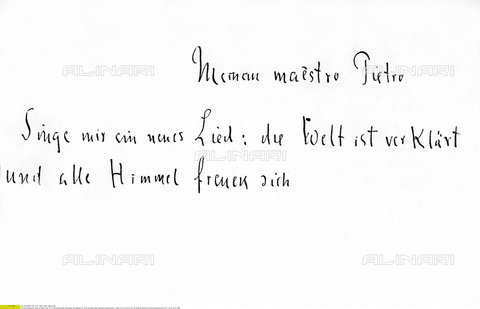 Meinem maëstro Pietro
ALINARI ALINARI
Singe mir ein neues Lied: die Welt ist verklärt
ALINARI
und alle Himmel freuen sich
ALINARI ALINARI